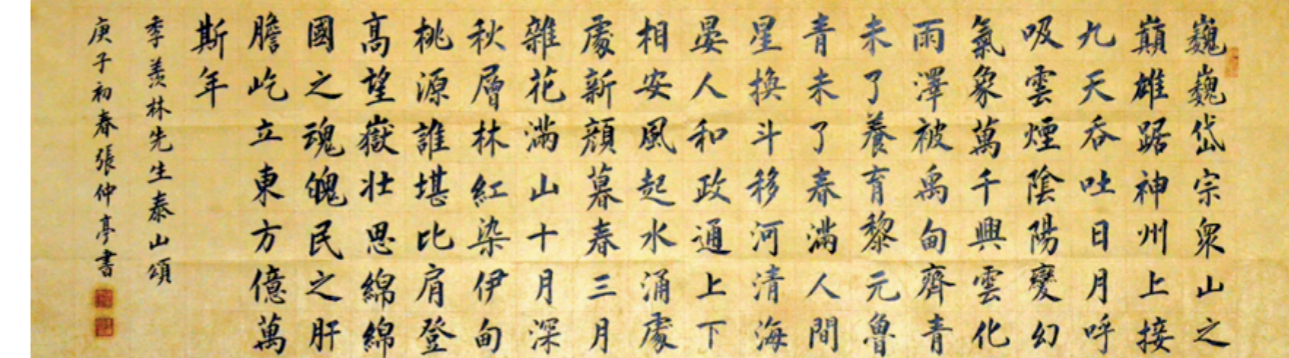 巍巍岱宗衆山之
巔雄踞神州上接
九天吞吐日月呼
吸雲煙陰陽變幻
氣象萬千興雲化
雨澤被禹甸齊青
未了養育黎元魯
青未了春滿人間
星換斗移河清海
晏人和政通上下
相安風起水涌處
處新顔暮春三月
雜花滿山十月深
秋層林紅染伊甸
桃源誰堪比肩登
高望嶽壯思綿綿
國之魂魄民之肝
膽屹立東方億萬
斯年
季羨林先生泰山頌
庚子初春張仲亭書